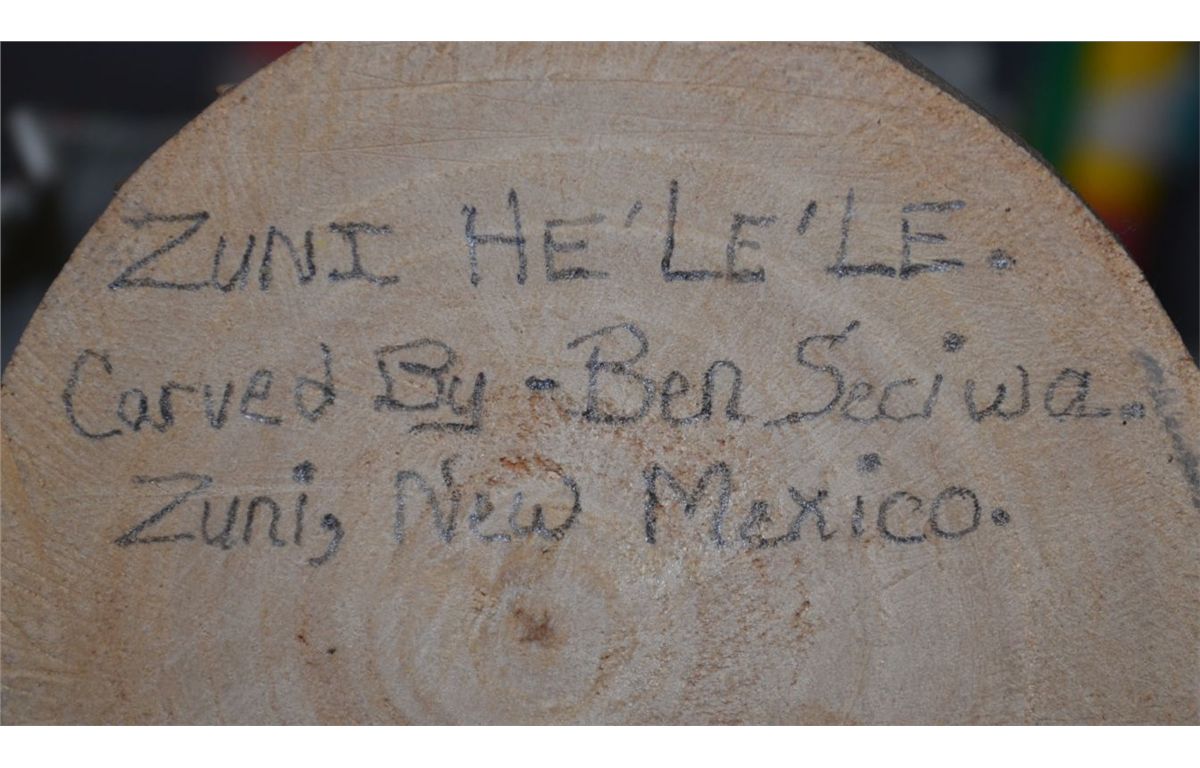 ZUNI HE'LE'LE.
Carved By - Ben Seciwa.
Zuni, New Mexico.